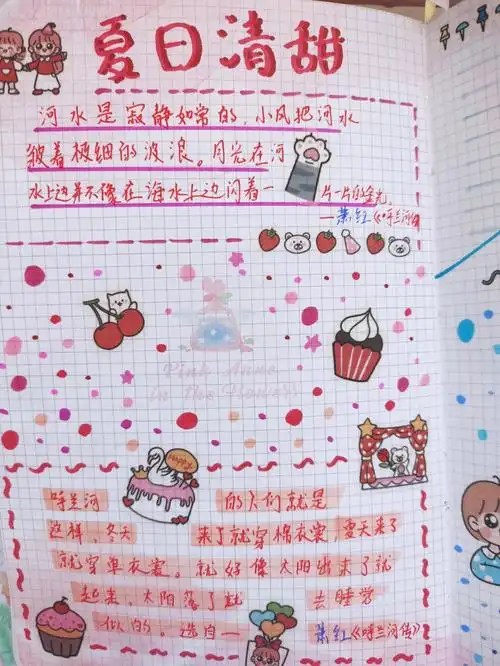 夏日清甜
河水是寂静如常的,小风把河水
皱着极细的波浪。月光在河
水上边并不像在海水上边闪着一片一片的金光。
—萧红《呼兰河传
Pink Anne
in the Flower
Happy
呼兰河的人们就是
这样,冬天来了就穿棉衣裳,夏天来了
就穿单衣裳。就好像太阳出来了就
起来,太阳落了就去睡觉
似的。选自—萧红《呼兰河传》